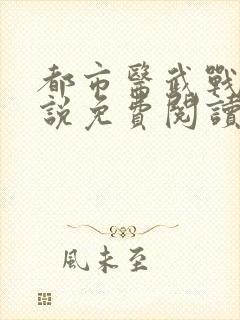 都市醫武戰
說免費閱讀
風未至